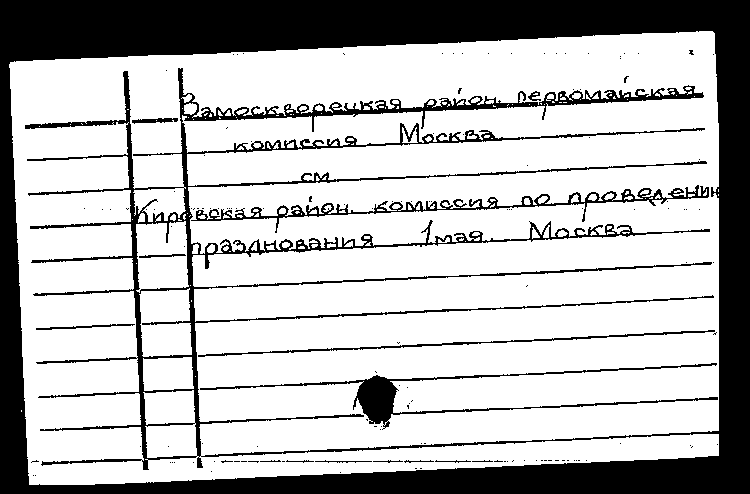 Замоскворецкая район. первомайская
комиссия. Москва
см.
Кировская район. комиссия по проведению
празднования 1 мая. Москва